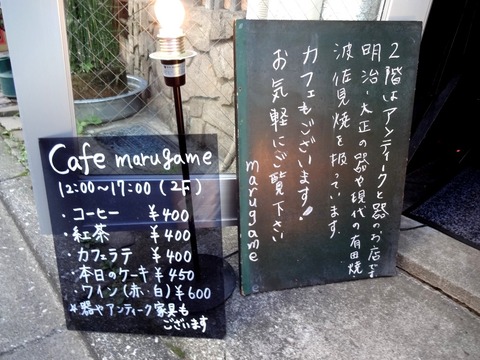 Cafe marugame
12:00~17:00 (2F)
・コーヒー ¥400
・紅茶 ¥400
・カフェラテ ¥400
・本日のケーキ ¥450
・ワイン(赤・白) ¥600
*器やアンティーク家具も
ございます
2階はアンティークと器のお店です
明治・大正の器や現代の有田焼・
波佐見焼を扱っています。
カフェもございます!
お気軽にご覧下さい
marugame